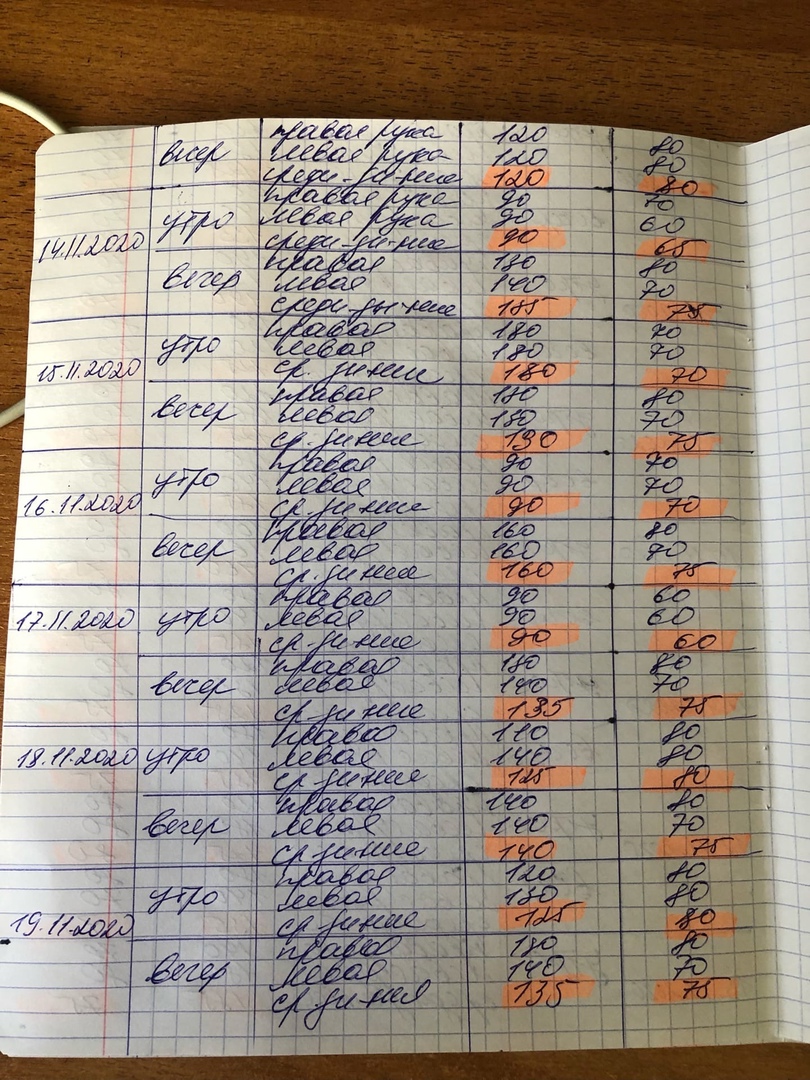 вечер правая рука 120 80
левая рука 120 80
средн. зн-ние 120 80
14.11.2020 утро правая рука 90 70
левая рука 90 60
средн. зн-ние 90 65
вечер правая 130 80
левая 140 70
средн. зн-ние 135 75
15.11.2020 утро правая 130 70
левая 130 70
ср. зн-ние 130 70
вечер правая 130 80
левая 130 70
ср. зн-ние 130 75
16.11.2020 утро правая 90 70
левая 90 70
ср. зн-ние 90 70
вечер правая 160 80
левая 160 70
ср. зн-ние 160 75
17.11.2020 утро правая 90 60
левая 90 60
ср. зн-ние 90 60
вечер правая 130 80
левая 140 70
ср. зн-ние 135 75
18.11.2020 утро правая 110 80
левая 140 80
ср. зн-ние 125 80
вечер правая 140 80
левая 140 70
ср. зн-ние 140 75
19.11.2020 утро правая 120 80
левая 130 80
ср. зн-ние 125 80
вечер правая 130 80
левая 140 70
ср. зн-ния 135 75